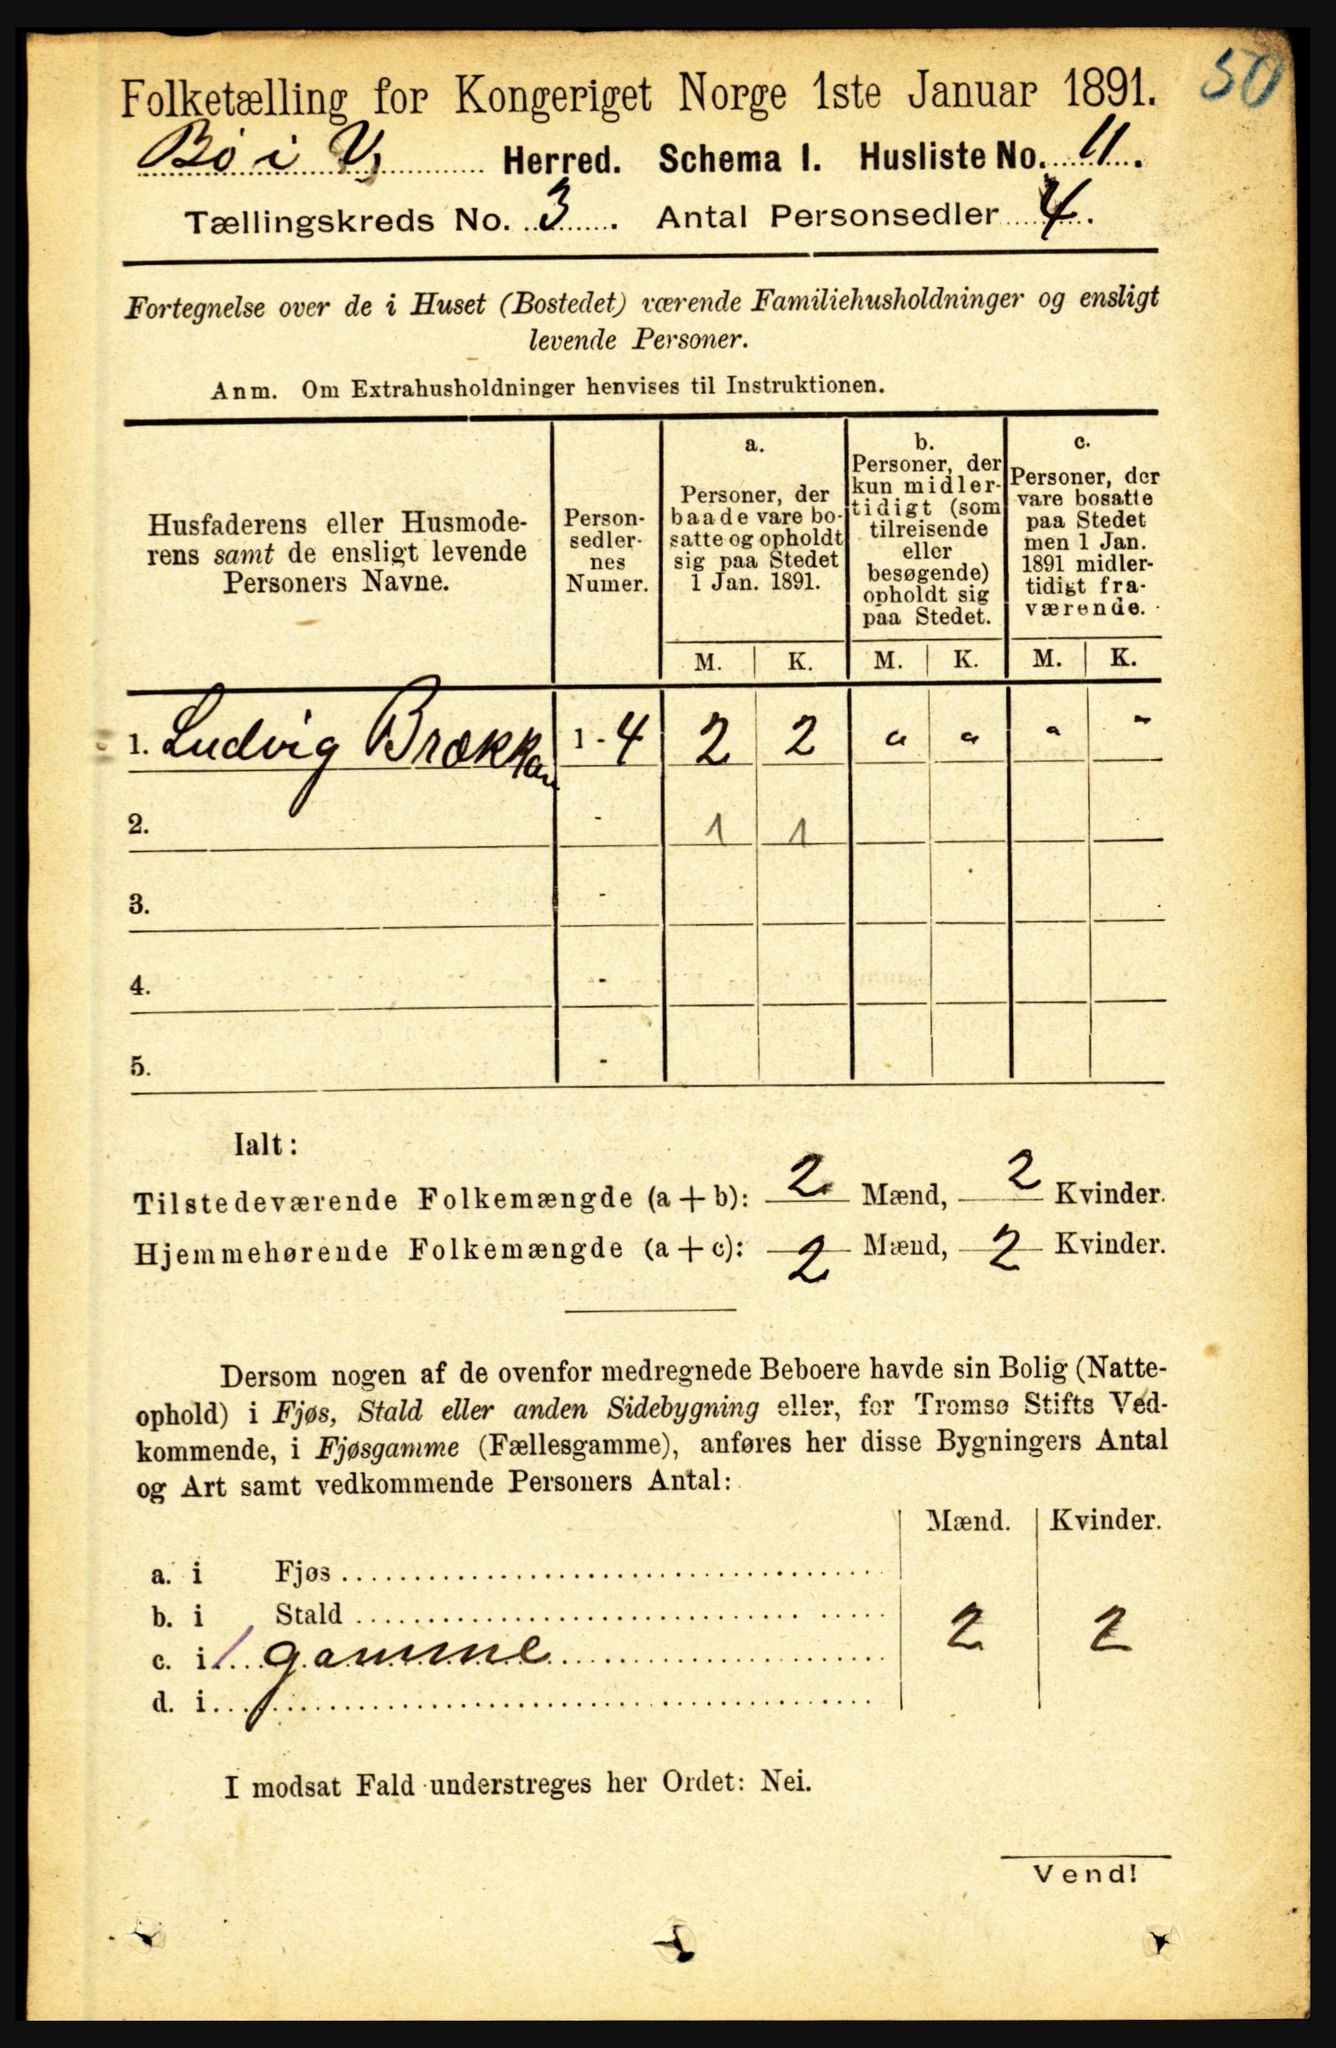 50
Folketælling for Kongeriget Norge 1ste Januar 1891.
Bö i V. Herred. Schema 1. Husliste No. 11.
Tællingskreds No. 3. Antal Personsedler 4.
Fortegnelse over de i Huset (Bostedet) værende Familiehusholdninger og ensligt
levende Personer.
Anm. Om Extrahusholdninger henvises til Instruktionen.
Husfaderens eller Husmode-
rens samt de ensligt levende
Personers Navne.
Person-
sedler-
nes
Numer.
a.
Personer, der
baade vare bo-
satte og opholdt
sig paa Stedet
1 Jan. 1891.
b.
Personer, der
kun midler-
tidigt (som
tilreisende
eller
besøgende)
opholdt sig
paa Stedet.
c.
Personer, der
vare bosatte
paa Stedet
men 1 Jan.
1891 midler-
tidigt fra-
værende.
M. K. M. K. M. K.
1. Ludvig Brækkan 1 - 4 2 2 " " " "
2. - 1 1
3. -
4. -
5. -
Ialt:
Tilstedeværende Folkemængde (a + b): 2 Mænd, 2 Kvinder.
Hjemmehørende Folkemængde (a + c): 2 Mænd, 2 Kvinder.
Dersom nogen af de ovenfor medregnede Beboere havde sin Bolig (Natte-
ophold) i Fjøs, Stald eller anden Sidebygning eller, for Tromsø Stifts Ved-
kommende, i Fjøsgamme (Fællesgamme), anføres her disse Bygningers Antal
og Art samt vedkommende Personers Antal:
Mænd. Kvinder.
a. i Fjøs
b. i Stald
c. i 1 gamme 2 2
d. i
I modsat Fald understreges her Ordet: Nei.
Vend!